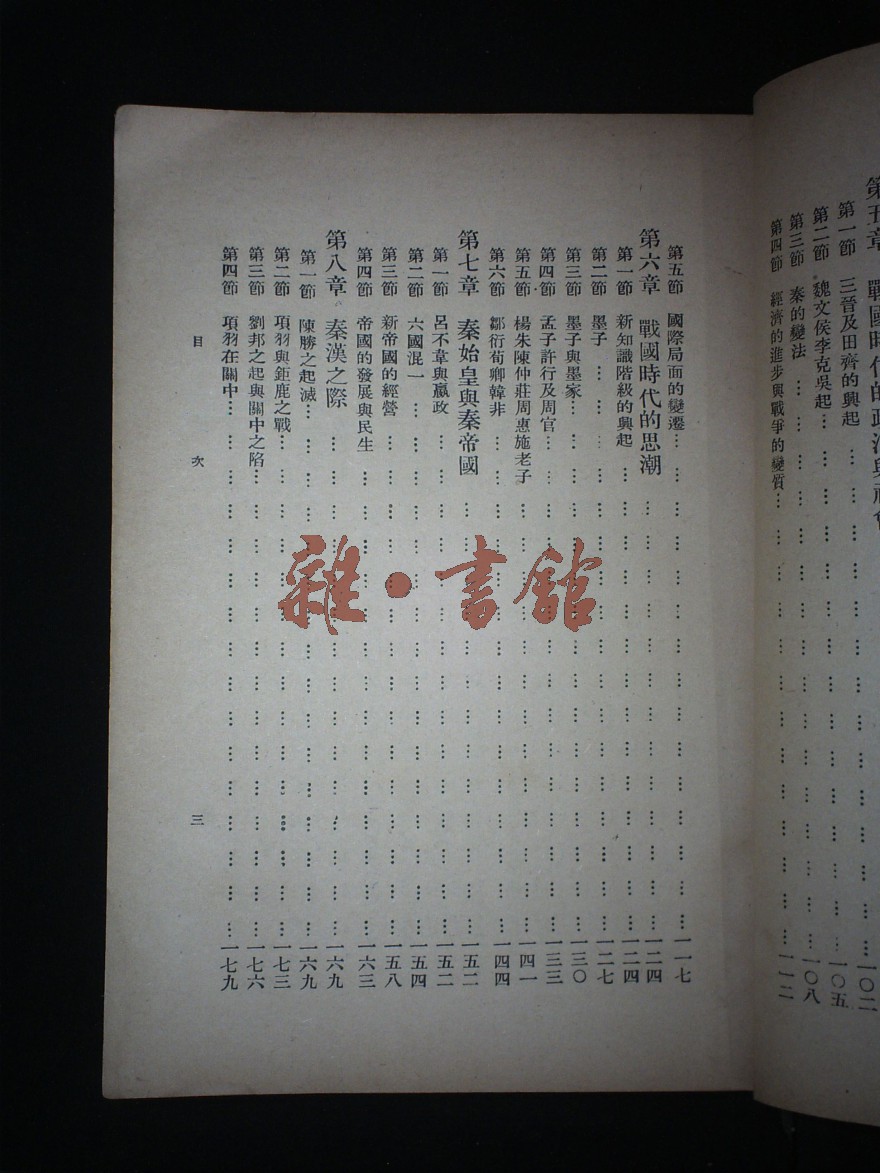 第五章 戰國時代的政治與社會
第一節 三晉及田齊的興起……一〇二
第二節 魏文侯李克吳起……一〇五
第三節 秦的變法……一〇八
第四節 經濟的進步與戰爭的變質……一一二
第五節 國際局面的變遷……一一七
第六章 戰國時代的思潮……一二四
第一節 新知識階級的興起……一二四
第二節 墨子……一二七
第三節 墨子與墨家……一三〇
第四節 孟子許行及周官……一三三
第五節 楊朱陳仲莊周惠施老子……一四一
第六節 鄒衍荀卿韓非……一四四
第七章 秦始皇與秦帝國……一五二
第一節 呂不韋與嬴政……一五二
第二節 六國混一……一五四
第三節 新帝國的經營……一五八
第四節 帝國的發展與民生……一六三
第八章 秦漢之際……一六九
第一節 陳勝之起滅……一六九
第二節 項羽與鉅鹿之戰……一七三
第三節 劉邦之起與關中之陷……一七六
第四節 項羽在關中……一七九
目次 三
雜·書館